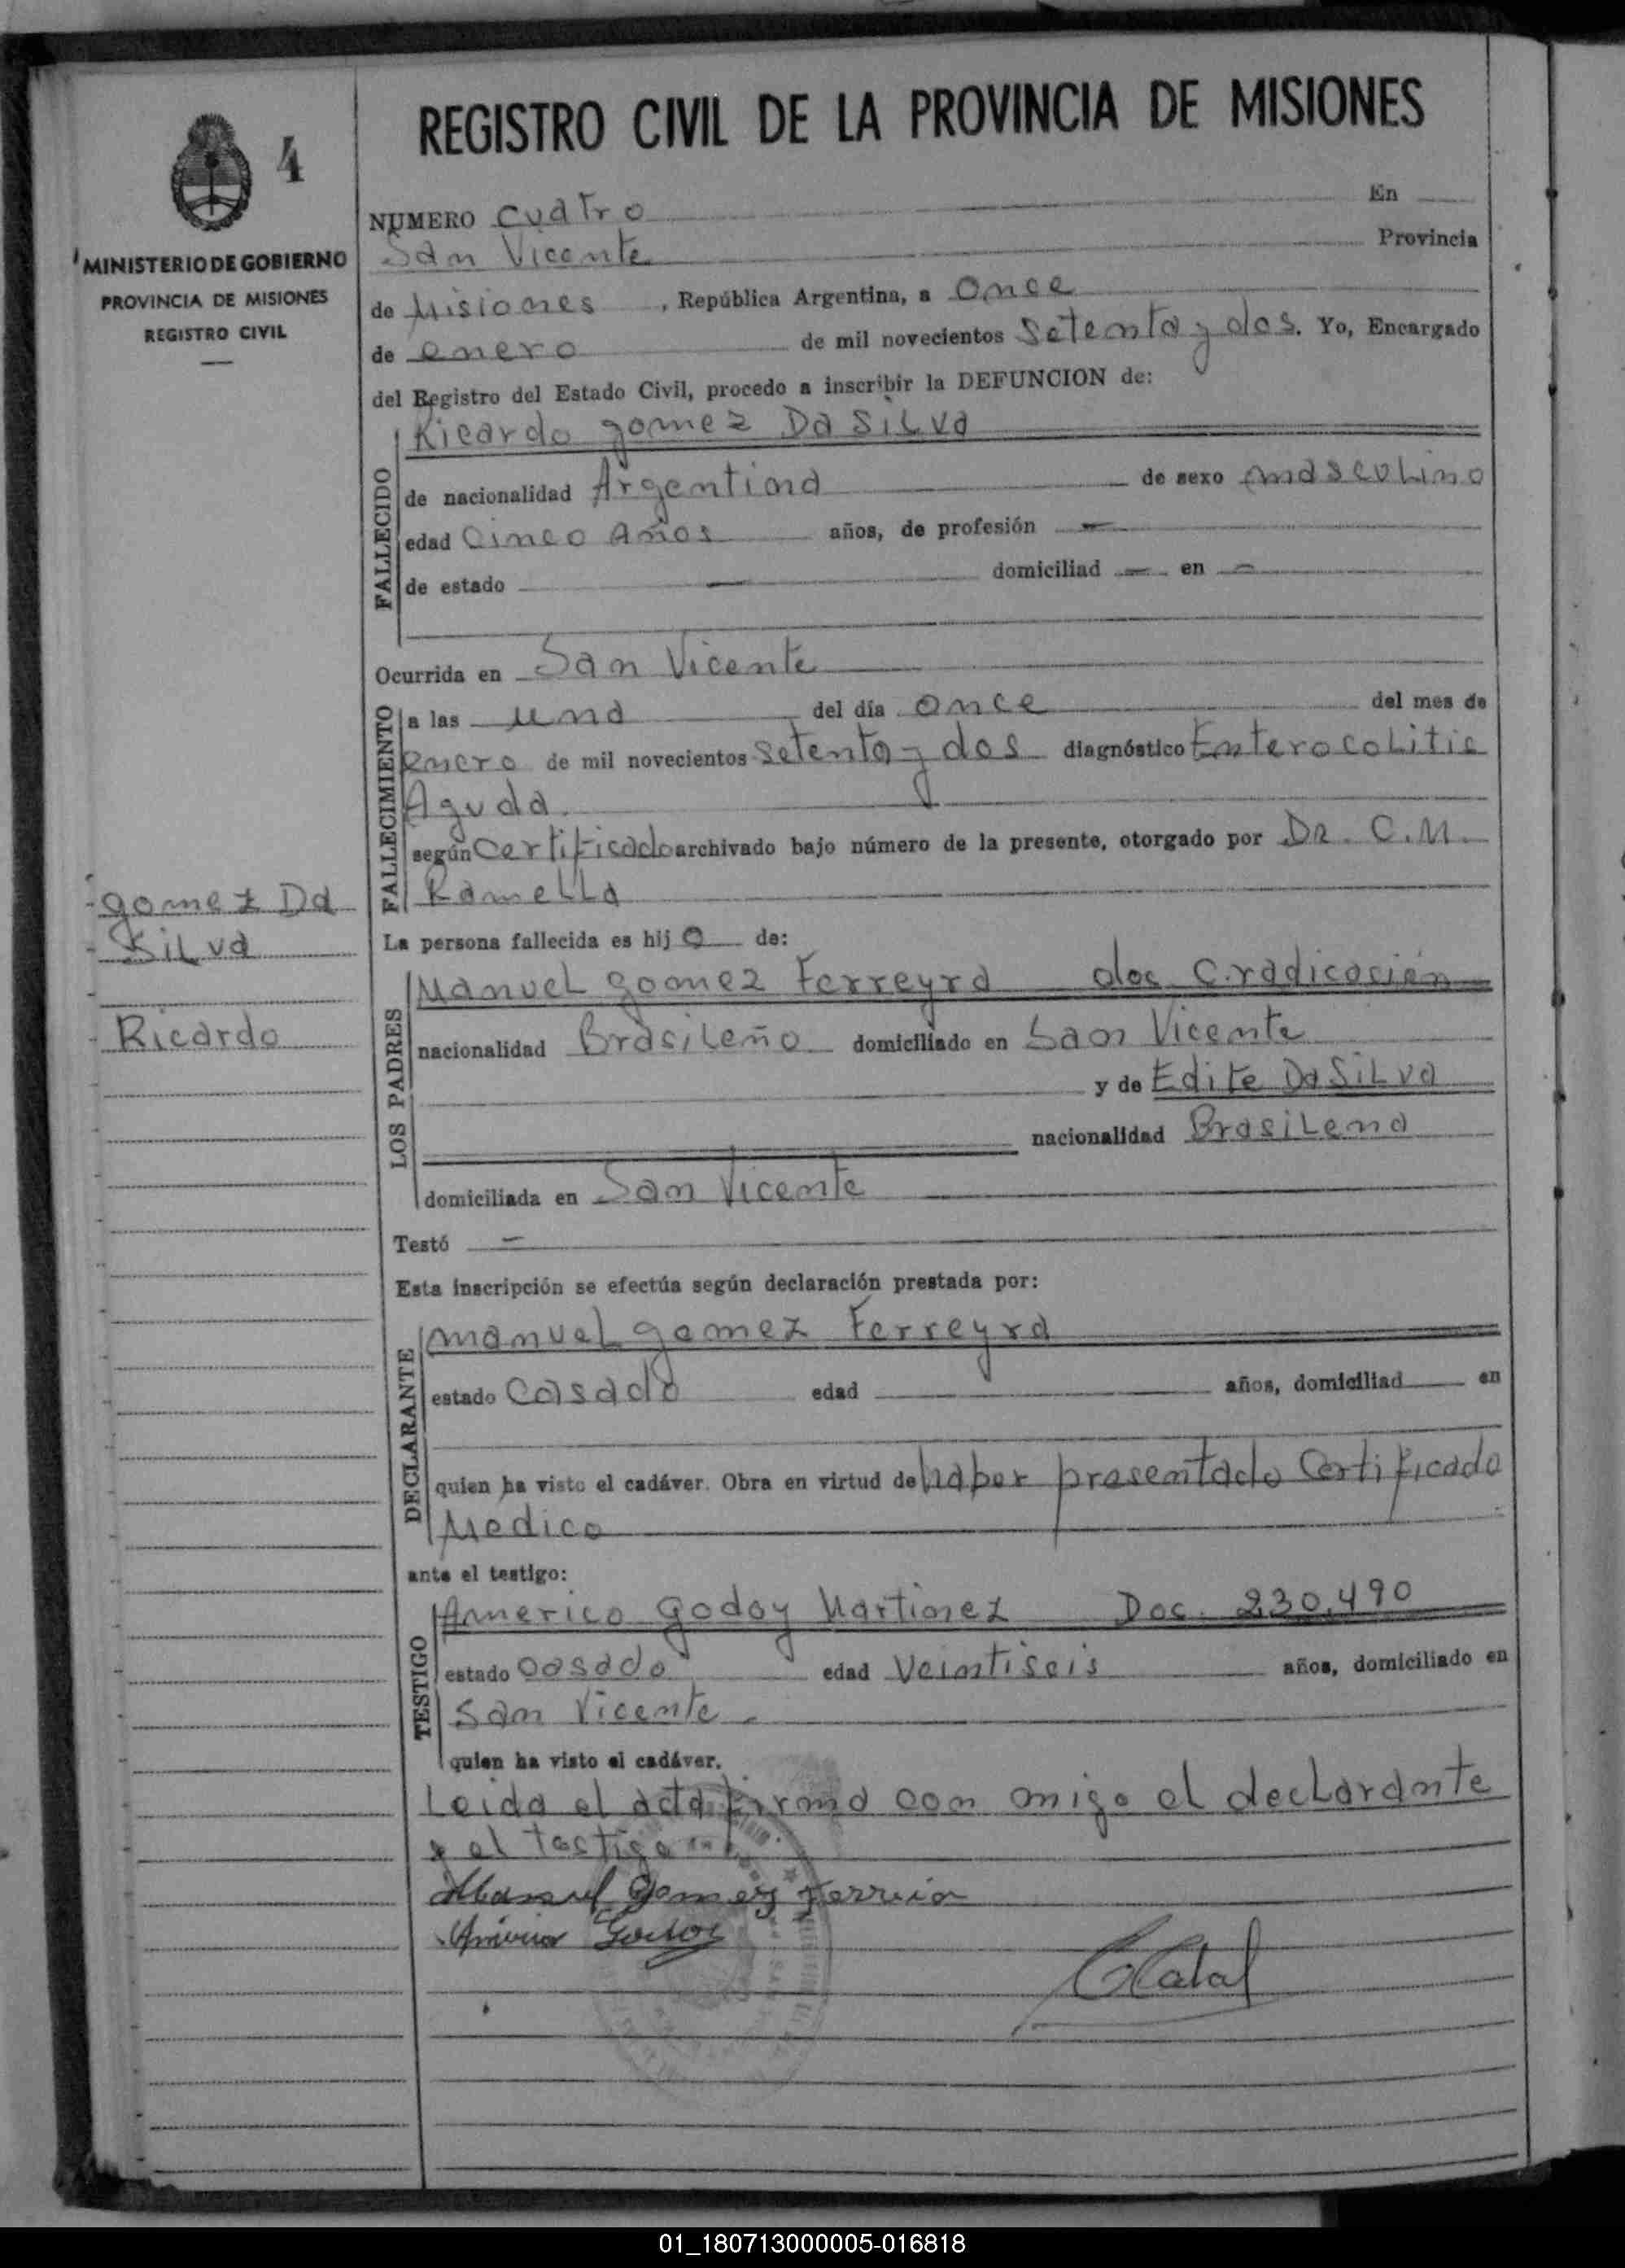 REGISTRO CIVIL DE LA PROVINCIA DE MISIONES
4
MINISTERIO DE GOBIERNO
PROVINCIA DE MISIONES
REGISTRO CIVIL
NUMERO cuatro En
San Vicente Provincia
de Misiones, República Argentina, a Once
de enero de mil novecientos setenta y dos. Yo, Encargado
del Registro del Estado Civil, procedo a inscribir la DEFUNCION de:
FALLECIDO
Ricardo gomez Da Silva
de nacionalidad Argentina de sexo masculino
edad Cinco Años años, de profesión —
de estado — domiciliad — en —
Ocurrida en San Vicente
FALLECIMIENTO
a las una del día once del mes de
enero de mil novecientos setenta y dos diagnóstico Enterocolitis
Aguda.
según Certificado archivado bajo número de la presente, otorgado por DR. C.M.
Ramella
gomez Da
Silva
Ricardo
La persona fallecida es hij o de:
LOS PADRES
Manuel gomez Ferreyra doc C.radicación
nacionalidad Brasileño domiciliado en San Vicente
y de Edite Da Silva
nacionalidad Brasilena
domiciliada en San Vicente
Testó —
Esta inscripción se efectúa según declaración prestada por:
DECLARANTE
manuel gomez Ferreyra
estado Casado edad años, domiciliad en
quien ha visto el cadáver. Obra en virtud de haber presentado Certificado
Medico
ante el testigo:
TESTIGO
Americo godoy Martinez Doc. 230.490
estado Casado edad Veintiseis años, domiciliado en
San Vicente.
quien ha visto el cadáver.
Leida el acta firma con migo el declarante
y el testigo
Manuel Gomez Ferreira
Godoy
01_180713000005-016818